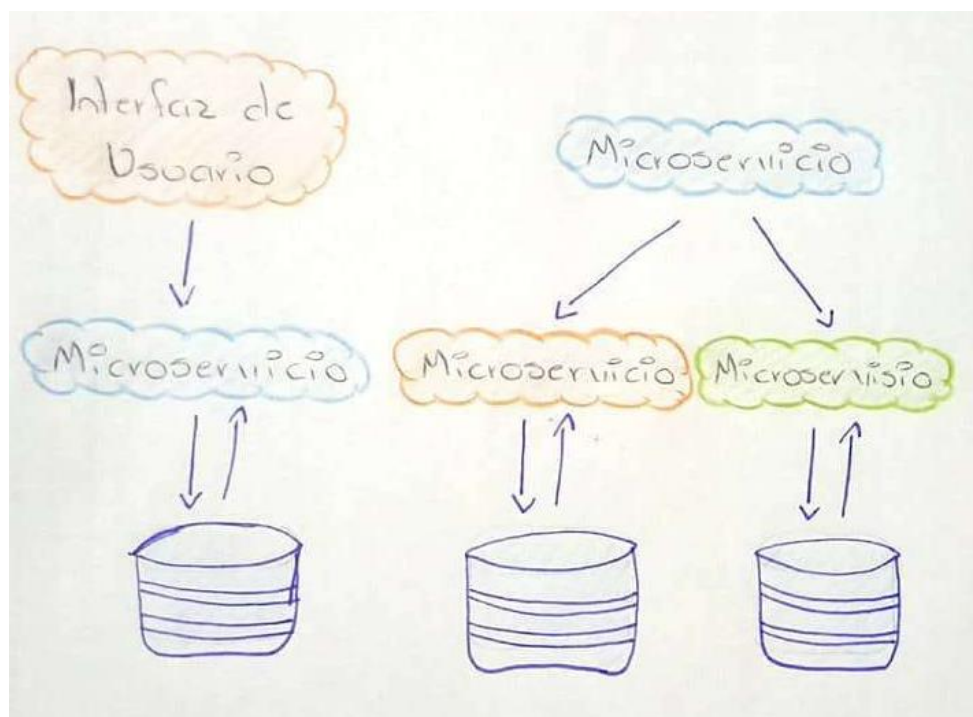 Interfaz de
Usuario
Microservicio
Microservicio
Microservicio
Microservisio